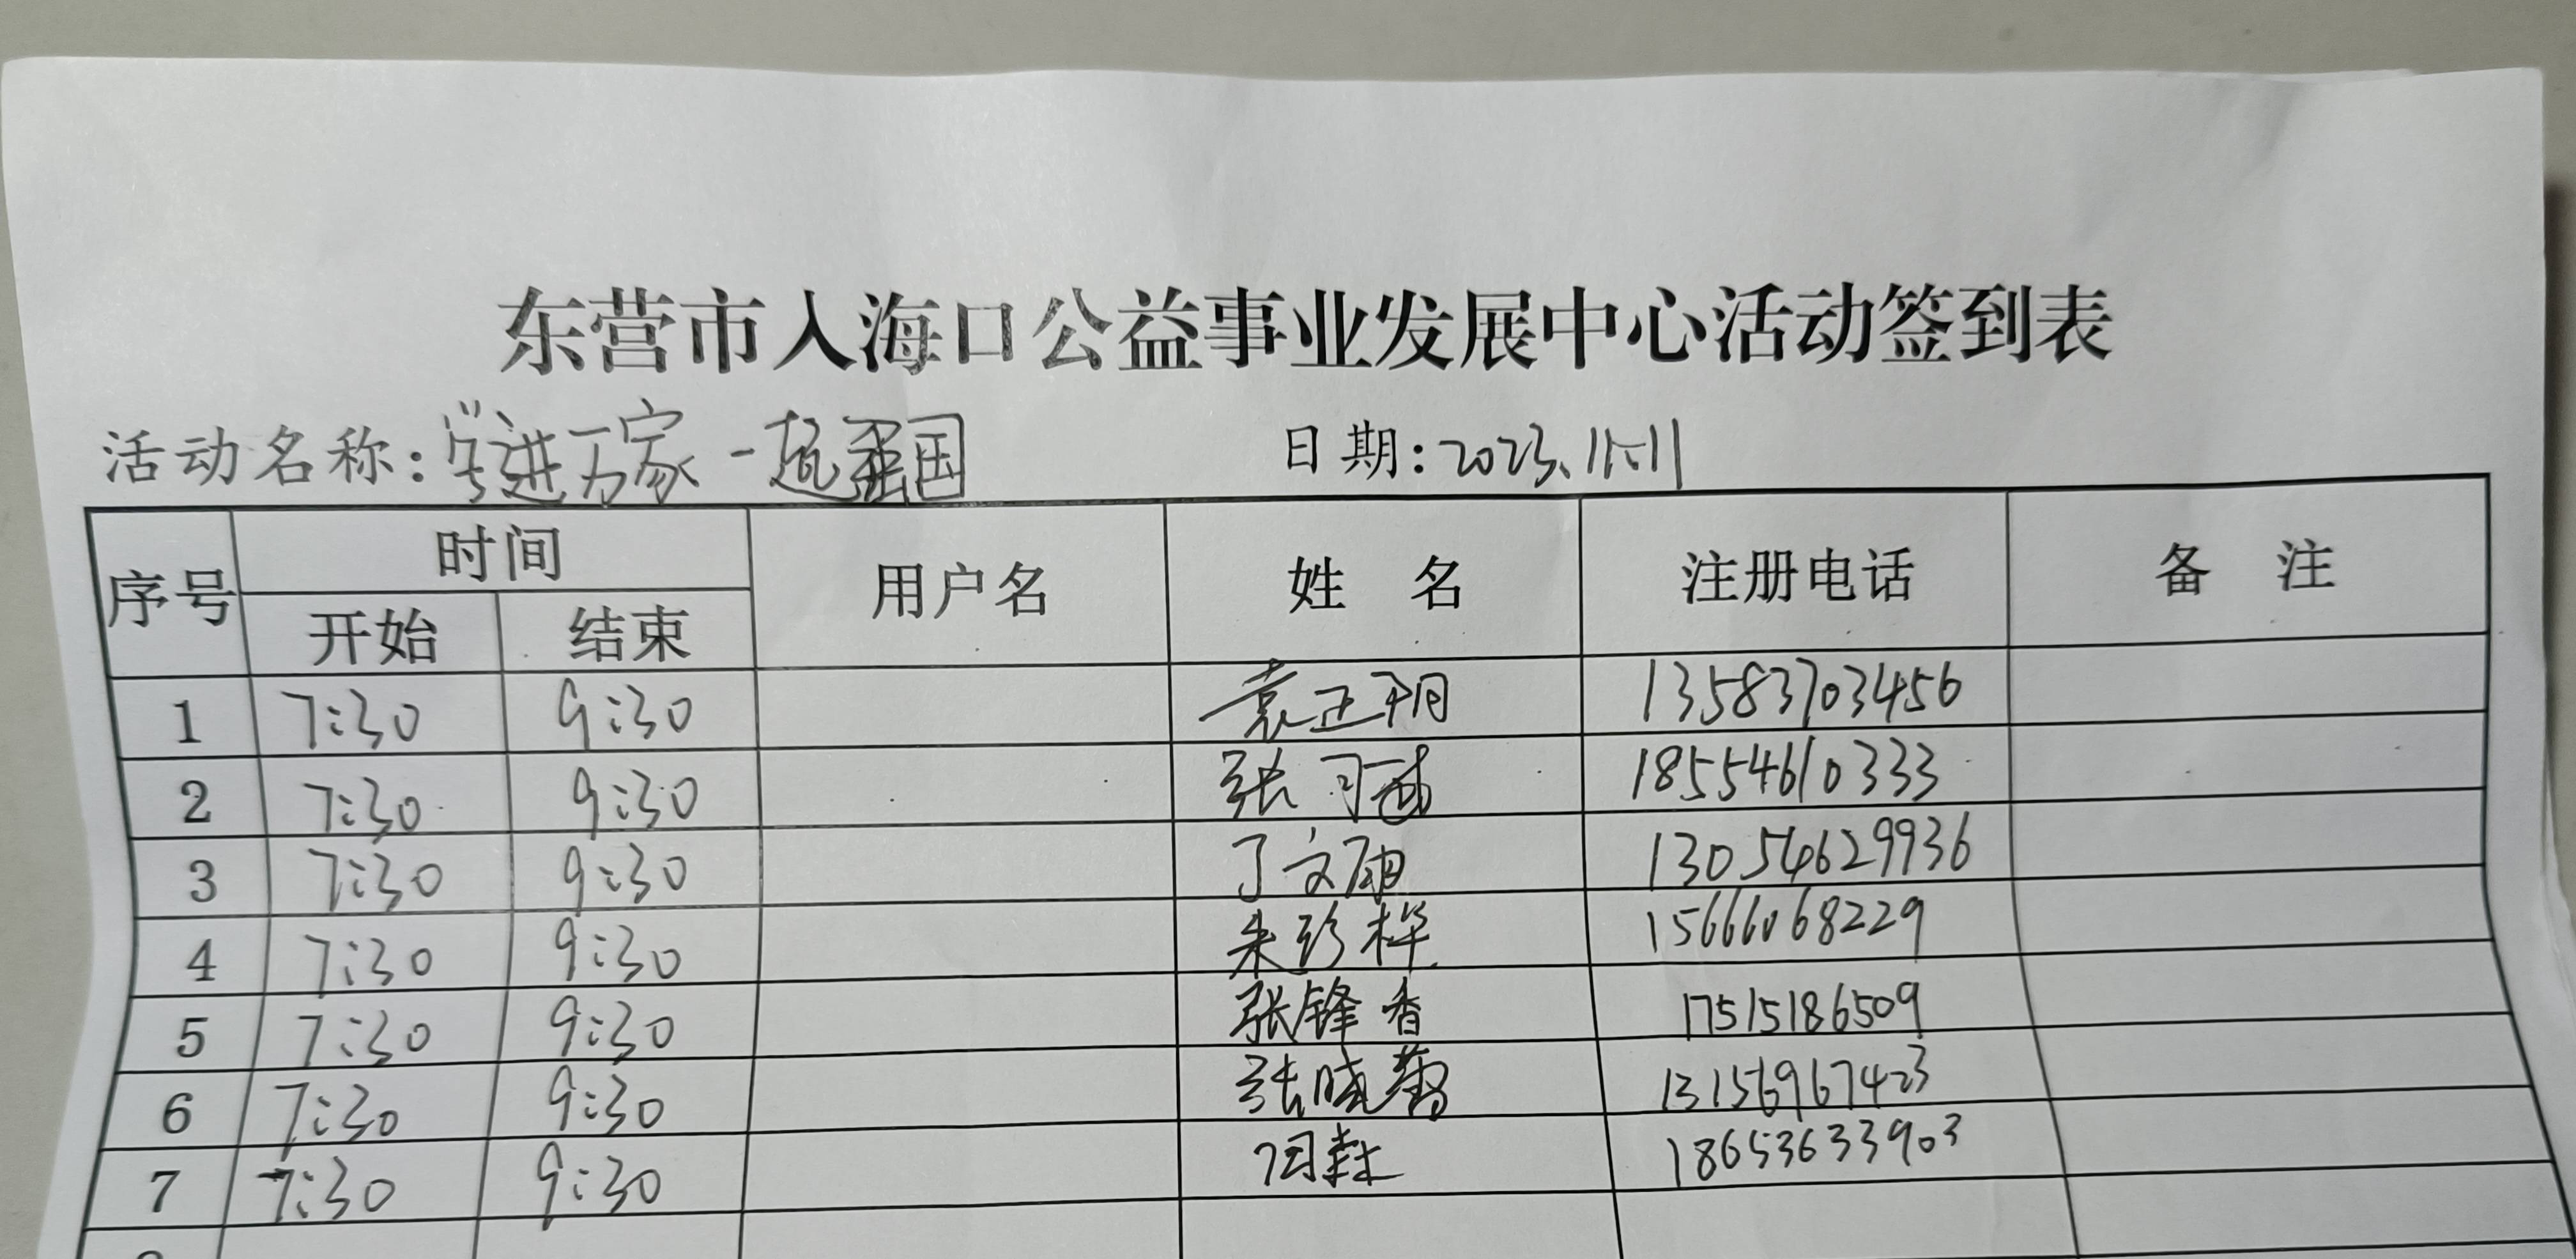 东营市入海口公益事业发展中心活动签到表
活动名称:学进万家一起强国 日期:2023.11.11
序号 时间 用户名 姓 名 注册电话 备 注
开始 结束
1 7:30 9:30 袁正明 13583703456
2 7:30 9:30 张 18554610333
3 7:30 9:30 丁文 13054629936
4 7:30 9:30 朱珍桦 15666068229
5 7:30 9:30 张锋香 17515186509
6 7:30 9:30 张晓 13156967423
7 7:30 9:30 18653633903